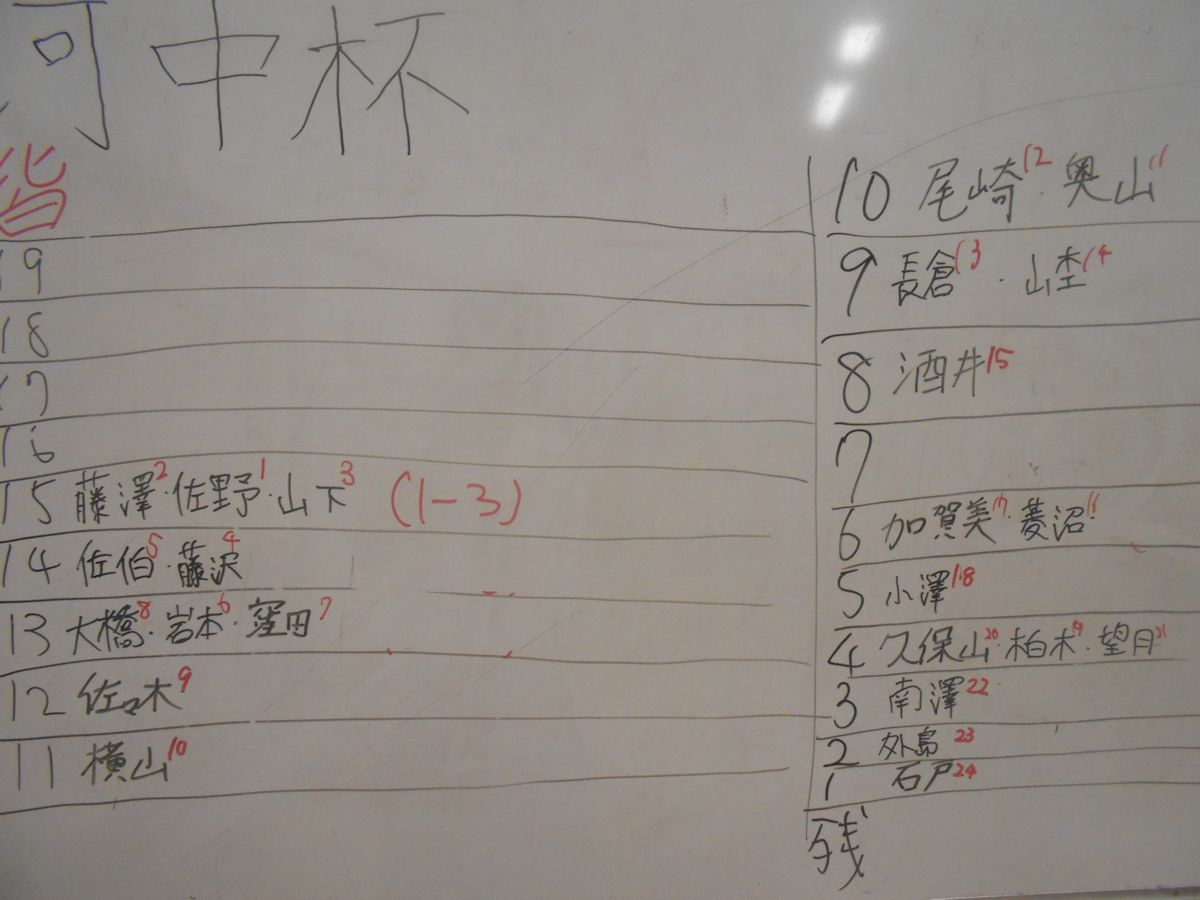 河中杯
皆
19
18
17
16
15 藤澤2・佐野1・山下3 (1-3)
14 佐伯5・藤沢4
13 大橋8・岩本6・窪田7
12 佐々木9
11 横山10
10 尾崎12・奥山11
9 長倉13・山埜14
8 酒井15
7
6 加賀美17・菱沼16
5 小澤18
4 久保山20・柏木19・望月21
3 南澤22
2 外島23
1 石戸24
残